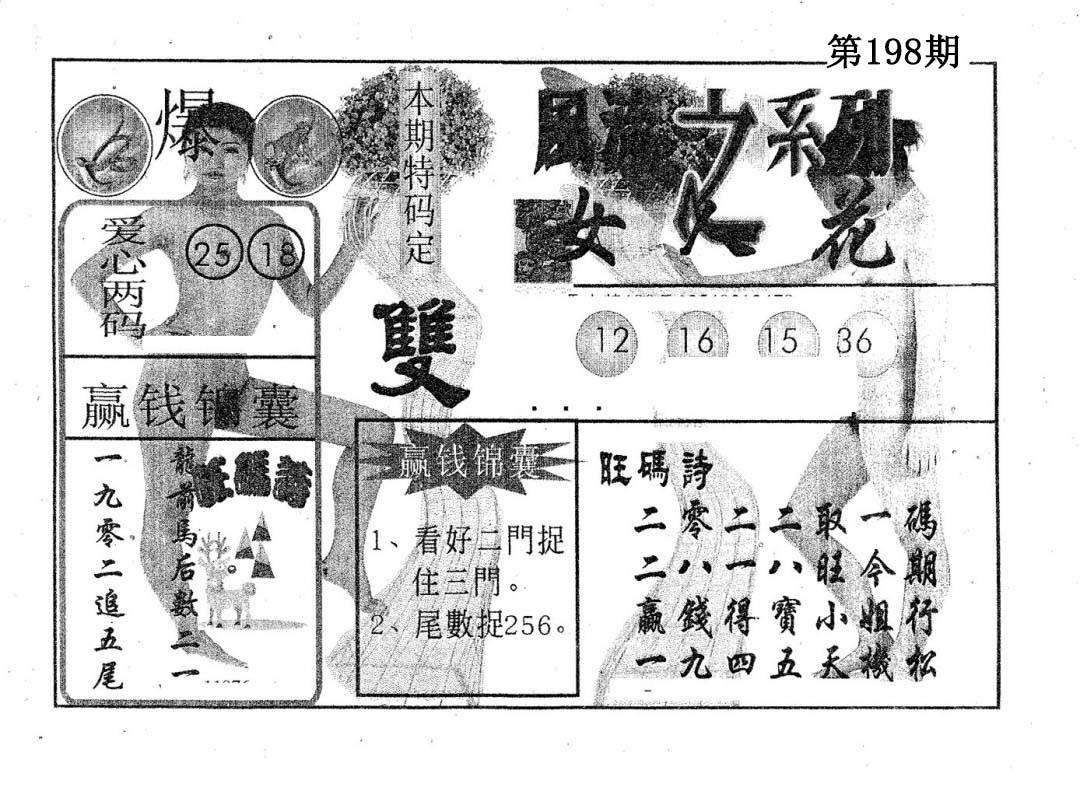 第198期
爆
本期特码定
雙
系列
女人花
爱心两码
25 18
12 16 15 36
赢钱锦囊
龍前馬后數二一
一九零二追五尾
赢钱锦囊
1、看好二門捉
住三門。
2、尾數捉256。
旺碼詩
二零二二取一碼
二八一八旺今期
贏錢得寶小姐行
一九四五天機松